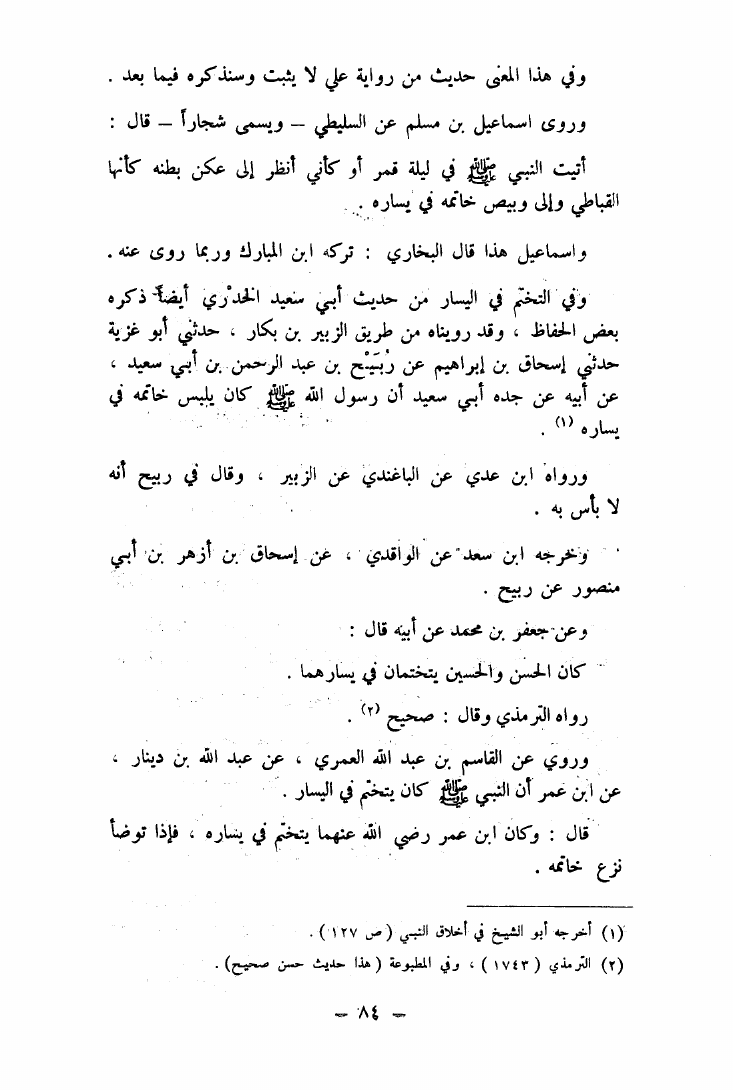 وفي هذا المعنى حديث من رواية علي لا يثبت وسنذكره فيما بعد .
وروى اسماعيل بن مسلم عن السليطي – ويسمى شجاراً – قال :
أتيت النبي ﷺ في ليلة قمر أو كأني أنظر إلى عكن بطنه كأنها
القباطي وإلى وبيص خاتمه في يساره .
واسماعيل هذا قال البخاري : تركه ابن المبارك وربما روى عنه .
وفي التختّم في اليسار من حديث أبي سعيد الخدْري أيضاً ذكره
بعض الحفاظ ، وقد رويناه من طريق الزبير بن بكار ، حدثني أبو غزية
حدثني إسحاق بن إبراهيم عن رُبَيْح بن عبد الرحمن بن أبي سعيد ،
عن أبيه عن جده أبي سعيد أن رسول الله ﷺ كان يلبس خاتمه في
يساره (١) .
ورواه ابن عدي عن الباغندي عن الزبير ، وقال في ربيح أنه
لا بأس به .
وخرجه ابن سعد عن الواقدي ، عن إسحاق بن أزهر بن أبي
منصور عن ربيح .
وعن جعفر بن محمد عن أبيه قال :
كان الحسن والحسين يتختمان في يسارهما .
رواه الترمذي وقال : صحيح (٢) .
وروي عن القاسم بن عبد الله العمري ، عن عبد الله بن دينار ،
عن ابن عمر أن النبي ﷺ كان يتختّم في اليسار .
قال : وكان ابن عمر رضي الله عنهما يتختّم في يساره ، فإذا توضأ
نزع خاتمه .
(١) أخرجه أبو الشيخ في أخلاق النبي ( ص ١٢٧ ) .
(٢) الترمذي ( ١٧٤٣ ) ، وفي المطبوعة ( هذا حديث حسن صحيح) .
– ٨٤ –